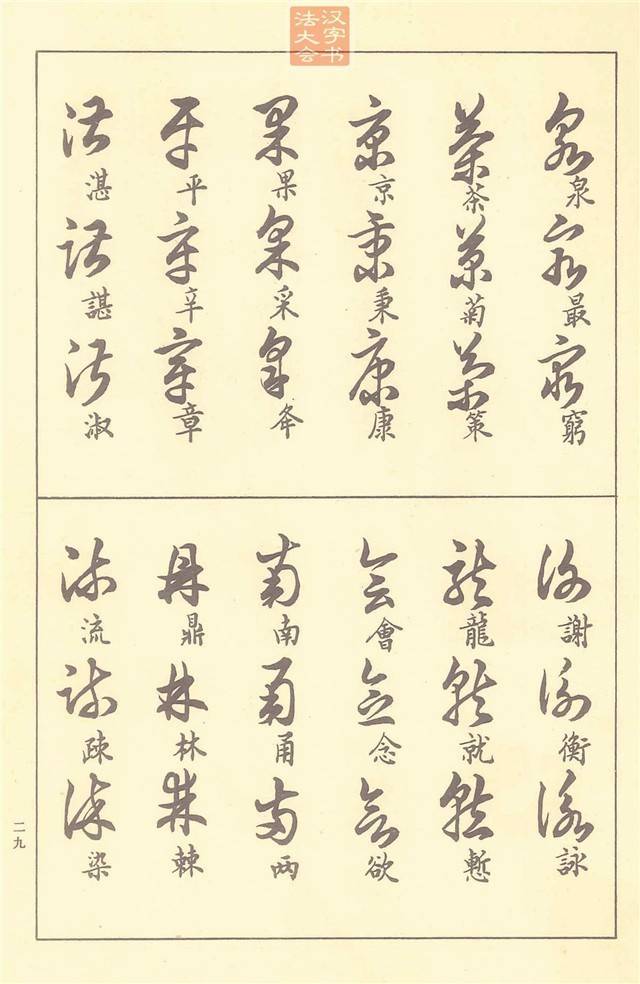 汉字书
法大会
泉 最 窮
茶 菊 策
京 秉 康
果 采
平 辛 章
湛 諶 淑
謝 衡 詠
龍 就 慙
會 念 欲
南 甬 两
鼎 林 棘
流 疎 染
二九